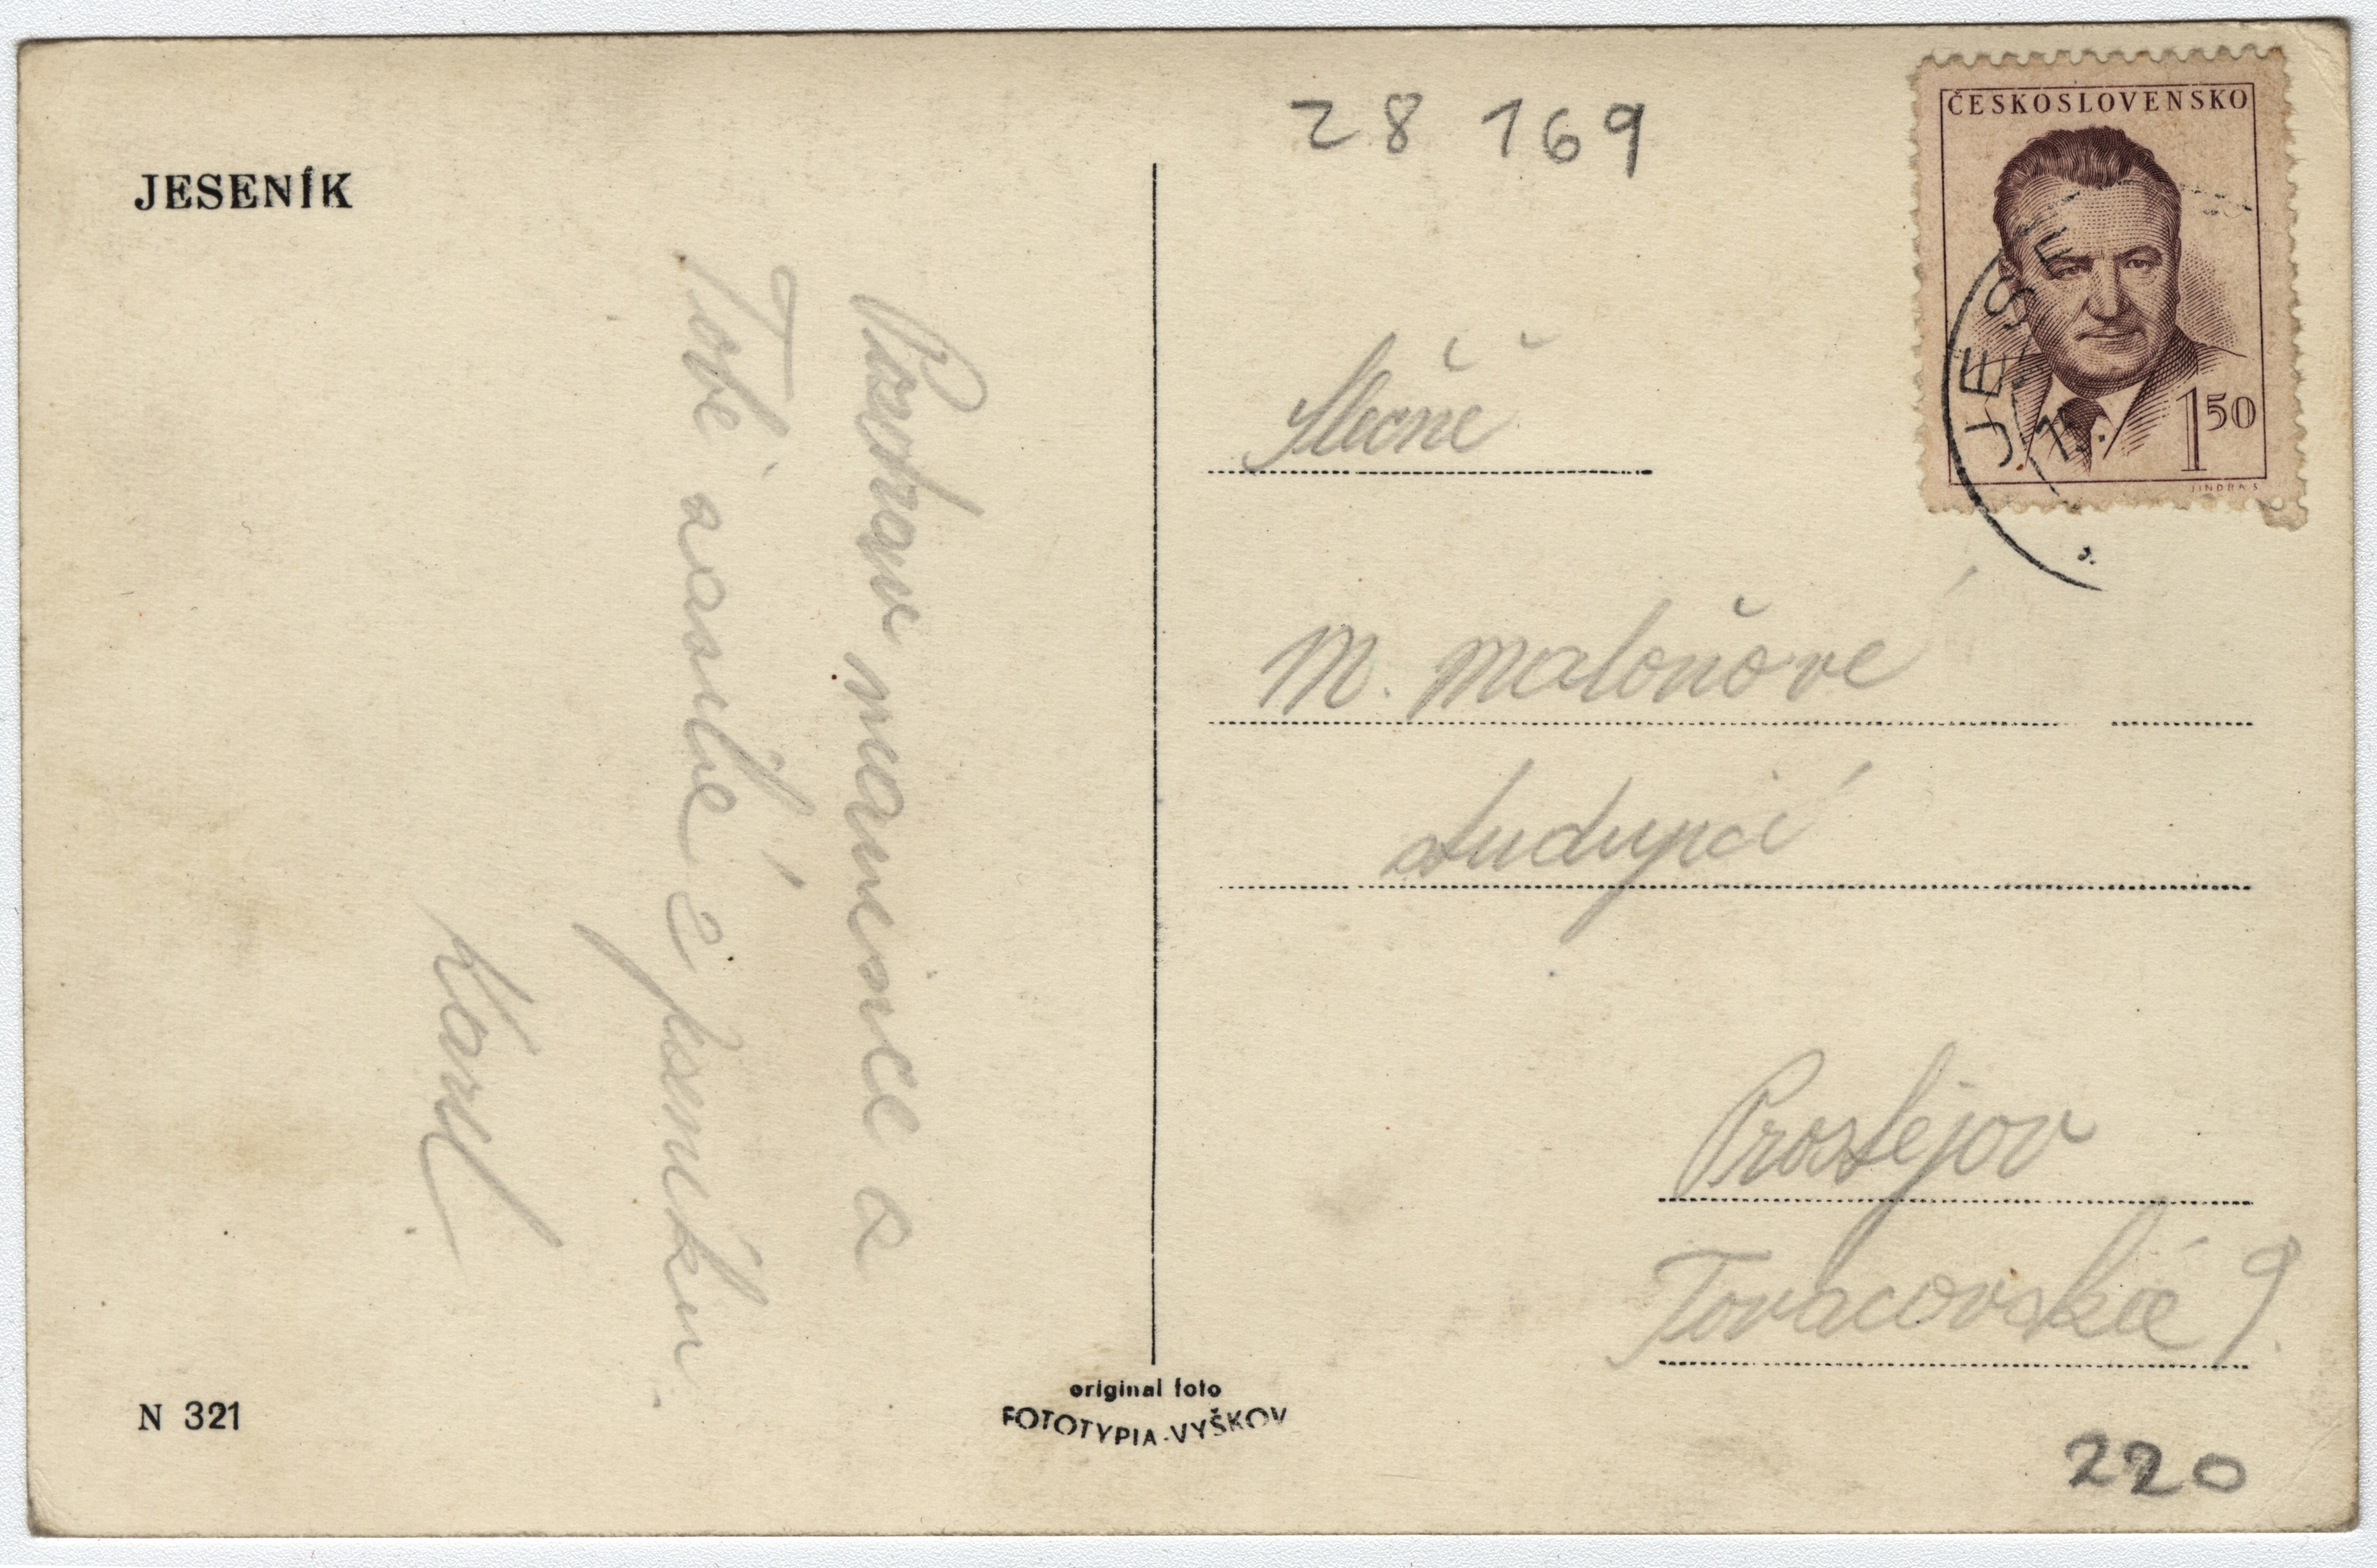 JESENÍK
Pozdrav mamince a
Tobě zasílá z Jeseníku
Karel
N 321
original foto
FOTOTYPIA-VYŠKOV
28 169
ČESKOSLOVENSKO
1 50
JINDRA S
JESE
Slečně
M. Maloňové
Prostějov
Tovačovská 9.
220